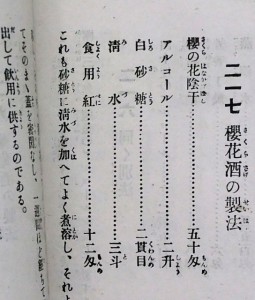 二一七 櫻花酒の製法
櫻の花陰干………五十匁
アルコール………二升
白砂糖………二貫目
淸水………三斗
食用紅………十二匁
これも砂糖に淸水を加へてよく煮溶し、それと
てそのまゝ蓋を密閉なし、一週
出して飮用に供するのである。